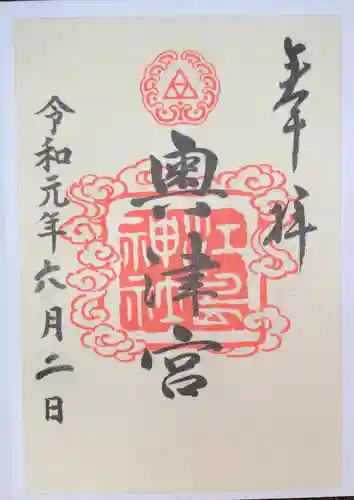 奉拝
江島神社
奥津宮
令和元年六月二日